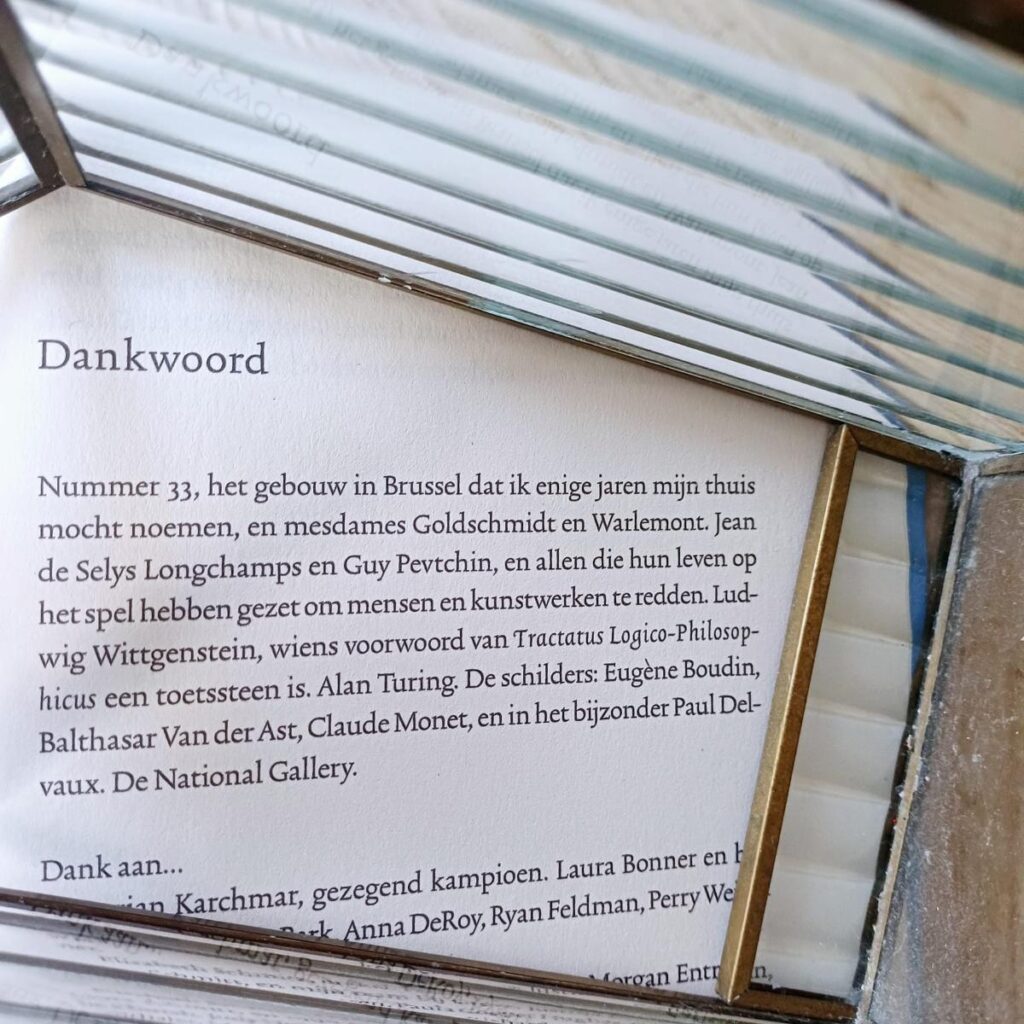 Dankwoord
Nummer 33, het gebouw in Brussel dat ik enige jaren mijn thuis
mocht noemen, en mesdames Goldschmidt en Warlemont. Jean
de Selys Longchamps en Guy Pevtchin, en allen die hun leven op
het spel hebben gezet om mensen en kunstwerken te redden. Lud-
wig Wittgenstein, wiens voorwoord van Tractatus Logico-Philosop-
hicus een toetssteen is. Alan Turing. De schilders: Eugène Boudin,
Balthasar Van der Ast, Claude Monet, en in het bijzonder Paul Del-
vaux. De National Gallery.
Dank aan...
Karchmar, gezegend kampioen. Laura Bonner en
Anna DeRoy, Ryan Feldman, Perry
Morgan